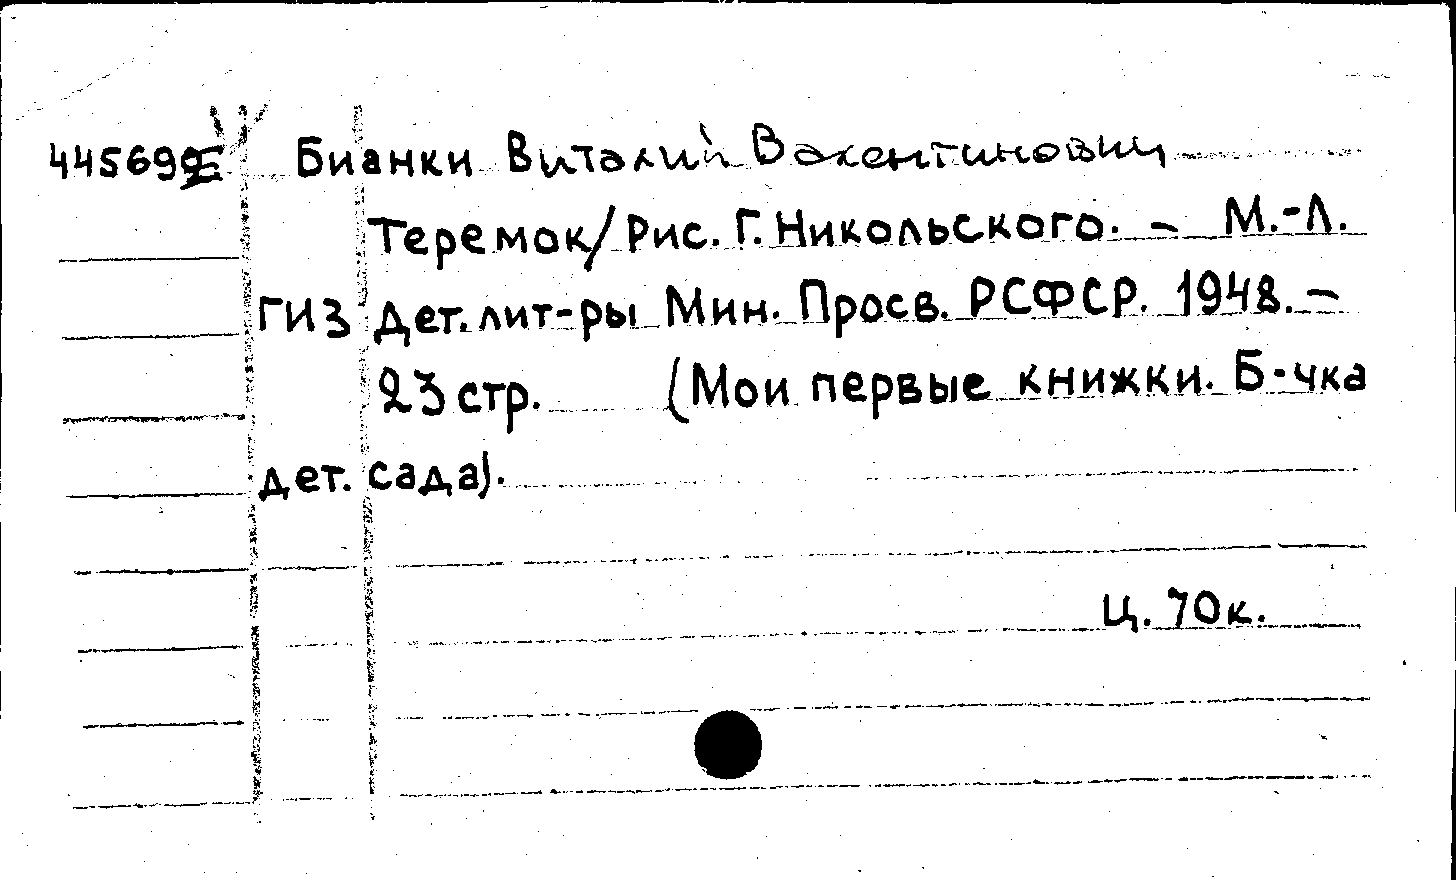 445699 Бианки Виталий Валентинович
Теремок/Рис. Г. Никольского. – М.-Л.
ГИЗ Дет. лит-ры Мин. Просв. РСФСР. 1948. –
23 стр. (Мои первые книжки. Б-чка
дет. сада).
Ц. 70к.